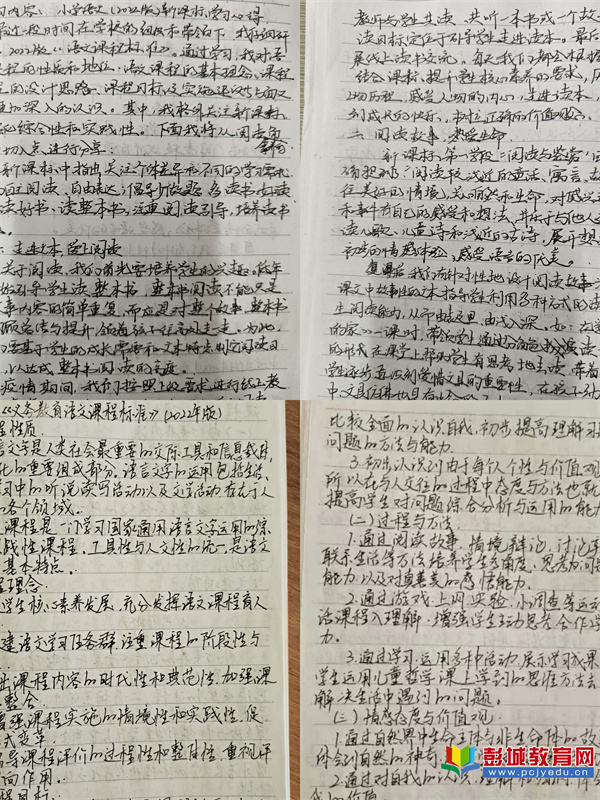 习内容: 小学语文(2022版)新课标学习心得
最近一段时间在学校的组织和带领下, 我仔细研
2022版《语文课程标准》。通过学习, 我对语
课程的性质和地位、语文课程的基本理念、课程
的设计思路、课程目标及实施建议等方面又
更加深入的认识。其中, 我格外关注新课标
的综合性和实践性。下面我将从阅读角
切入点进行分享:
新课标中指出关注个体差异和不同的学习需求
自主阅读、自由表达; 倡导少做题、多读书、好读
读好书、读整本书, 注重阅读引导, 培养读书
走进文本 爱上阅读
关于阅读, 我们首先要培养学生的兴趣。低年
引导学生读整本书, 整本书阅读不能只是
事内容的简单重复, 而应是对整个故事、整本书
要基于学生的成长需要和文本特点制定阅读目
以达成整本书阅读的高度。
疫情期间, 我们按照上级要求进行线上教
教师与学生共读、共听一本书或一个故
读目标定位于引导学生走进读本。最后
展线上读书交流。每天我们都会根据
结合课标, 提升整核心素养的要求, 历
人物历程, 感受人物的内心, 走进读本,
到成长的快乐, 树立正确的价值观。
二、阅读故事, 热爱生命
新课标第一学段"阅读与鉴赏"
确提到: 阅读浅近的童话、寓言、故
往美好的情境, 关心自然和生命, 对感兴趣
和事件有自己的感受和想法, 并乐于与他人
读儿歌、儿童诗和浅近的古诗, 展开想
初步的情感体验, 感受语言的优美。
复课后 我们有针对性地设计阅读故事
课文中故事性的文本 指导学生利用多种方式的
生阅读能力, 从而由表及里、由浅入深。如: 在
的家》一课时, 带领学生通过分角色朗读
的形式 在课堂上帮助学生有思考地去读, 带着
学生逐步意识到爱惜文具的重要性,
《义务教育语文课程标准》(2022年版)
程性质
言文字是人类社会最重要的交际工具和信息载体,
化的重要组成部分。语言文字的运用包括生活、
习中的听说读写活动以及文学活动, 存在于人
的各个领域。
课程是一门学习国家通用语言文字运用的综
实践性课程。工具性与人文性的统一, 是语文
基本特点。
程理念
学生核心素养发展, 充分发挥语文课程育人
建语文学习任务群, 注重课程的阶段性与
出课程内容的时代性和典范性, 加强课
整合
增强课程实施的情境性和实践性, 促
式变革
倡导课程评价的过程性和整体性, 重视评
向作用。
程目标
比较全面的认识自我, 初步提高理解
问题的方法与能力。
3. 初步认识到由于每个人个性与价值观
所以在与人交往的过程中态度与方法也就
提高学生对问题综合分析与运用的能力
(二) 过程与方法
1. 通过阅读故事、情境辩论、讨论
联系生活等方法培养学生多角度、思考问
能力以及对真善美的感悟能力。
2. 通过游戏、上网、实验、小调查等运
活课程入理解, 增强学生主动思考、合作学
力。
3. 通过学习、运用多种活动, 展示学习成果
学生运用儿童哲学课上学到的思维方法去
解决生活中遇到的问题。
(三) 情感态度与价值观:
1. 通过自然界中生命主体与非生命体的故
体会到自然的神奇
2. 通过对自我的认识
彭城教育网
www.pcjyedu.cn